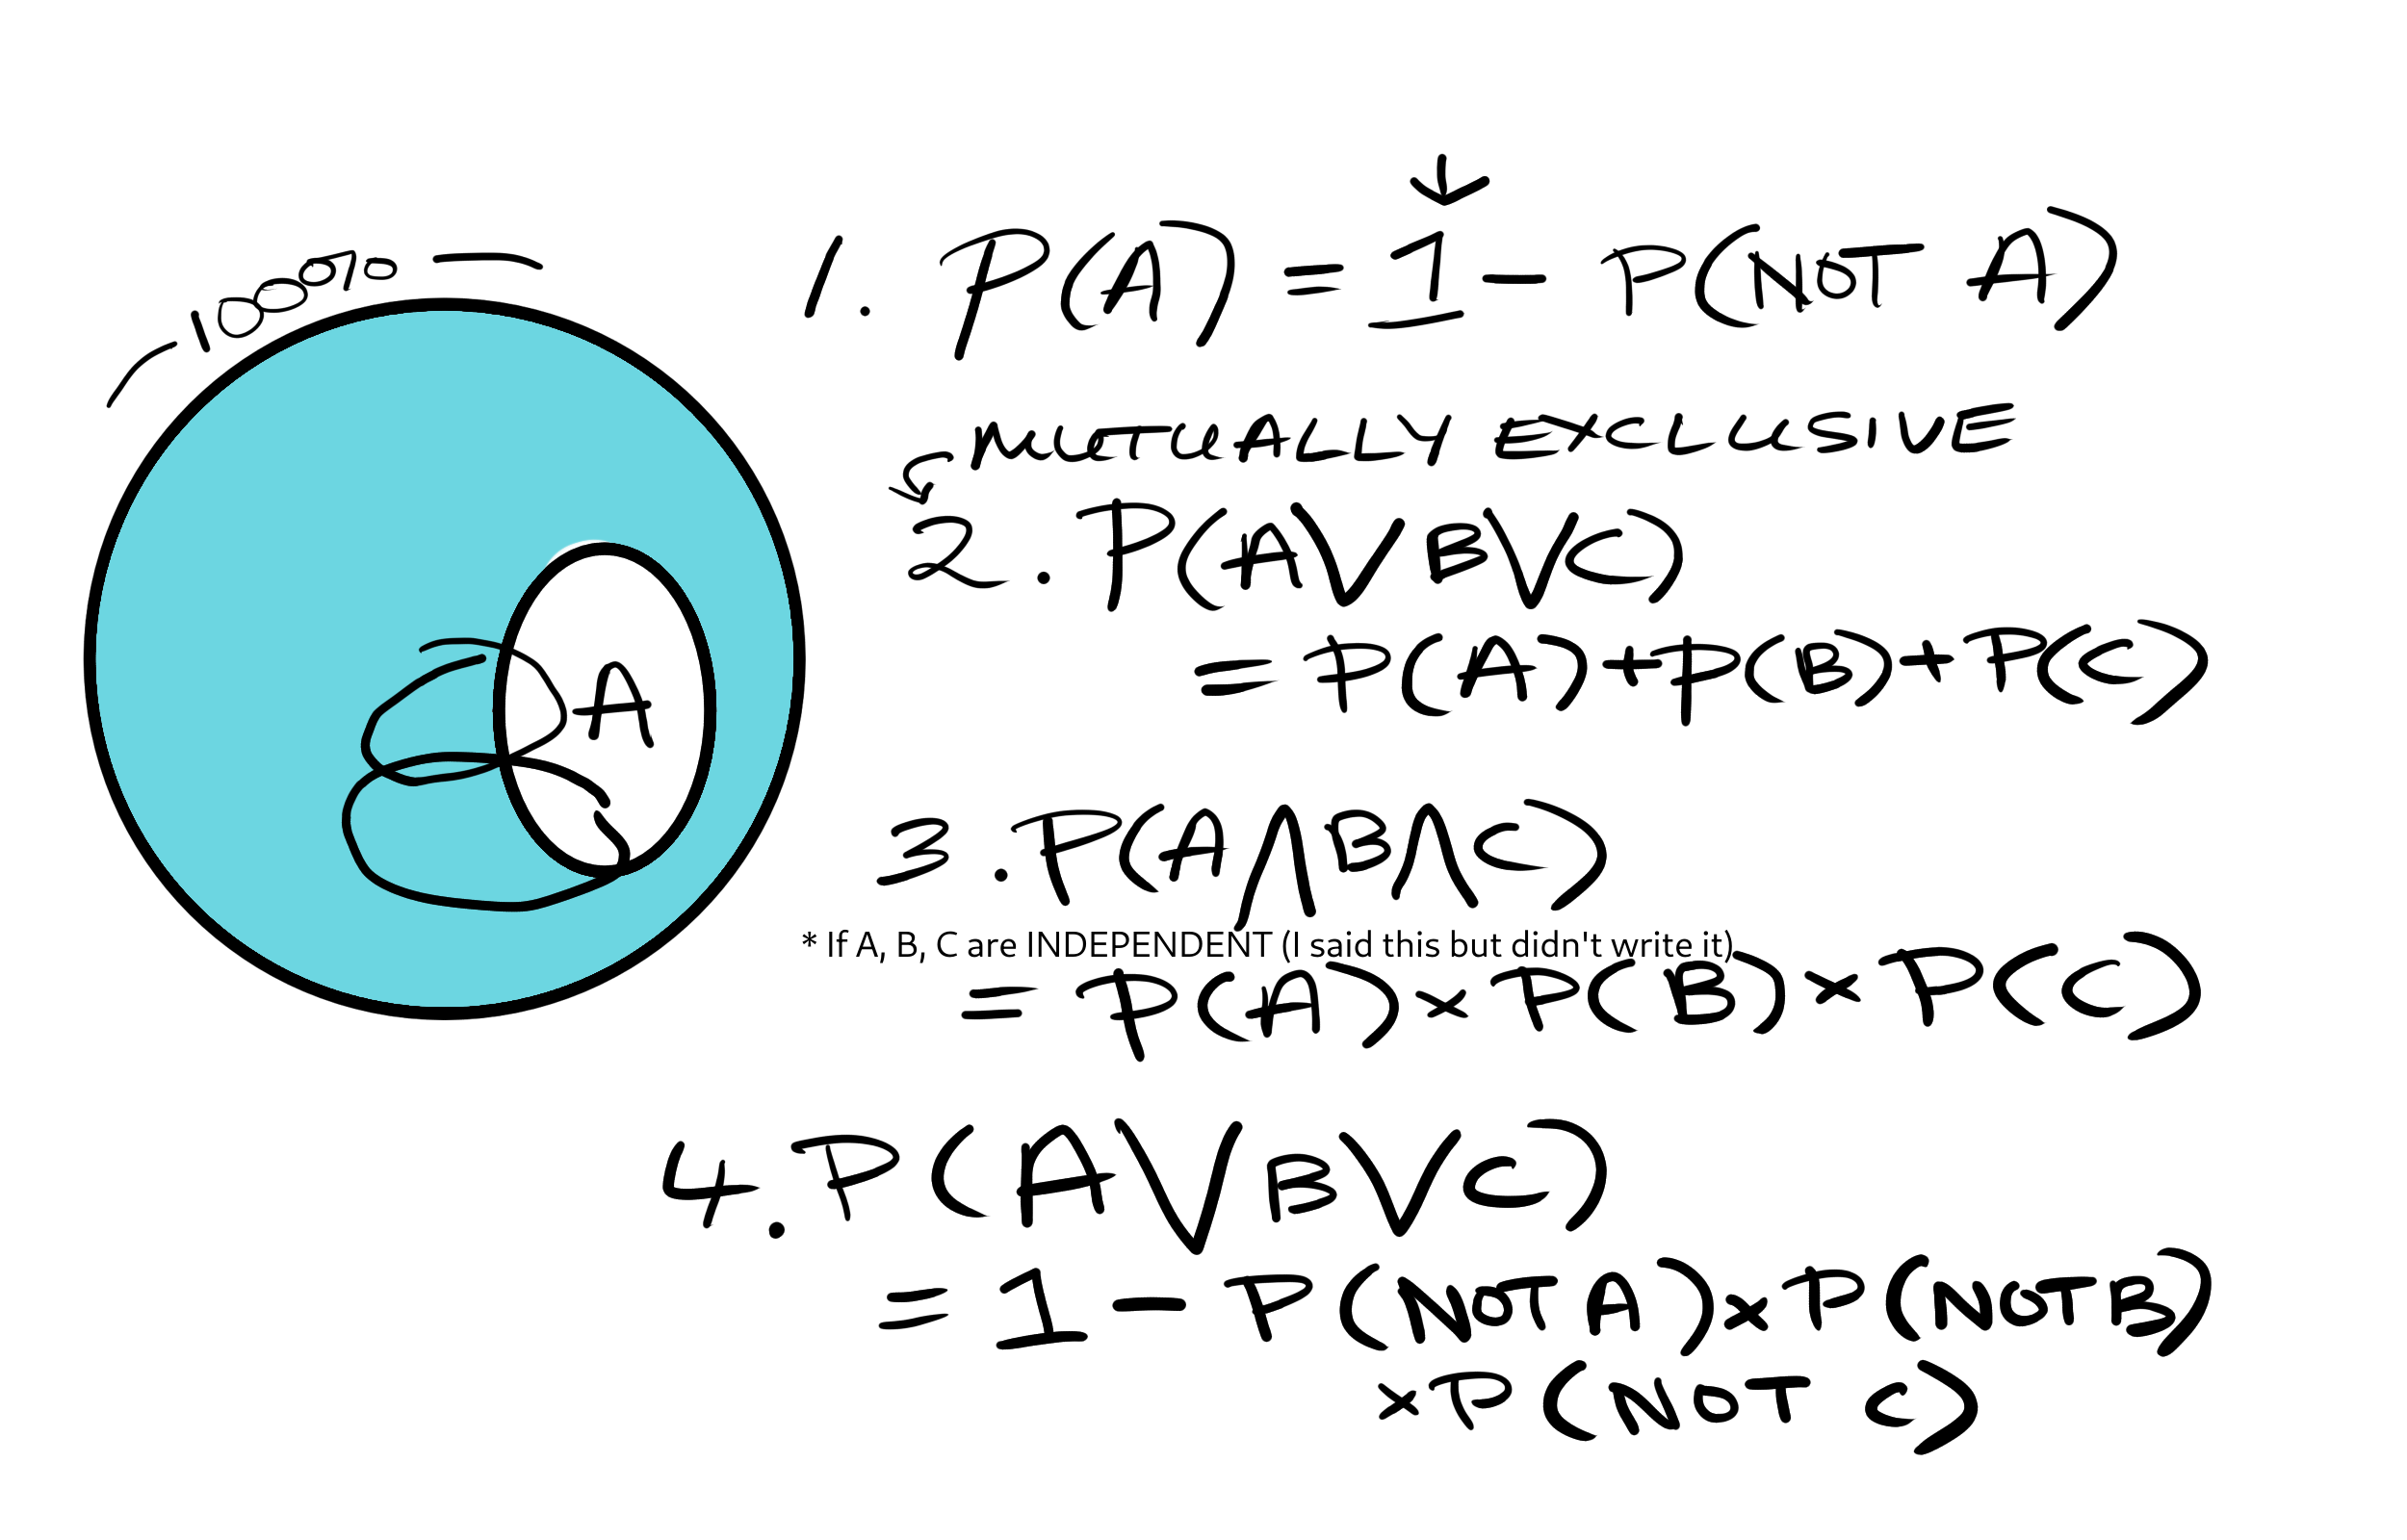 100%
A
1. P(A) = 1 - P(NOT A)
MUTUALLY EXCLUSIVE
2. P(A V B V C)
= P(A) + P(B) + P(C)
3. P(A ⋀ B ⋀ C)
* If A, B, C are INDEPENDENT (I said this but didn't write it)
= P(A) × P(B) × P(C)
4. P(A V B V C)
= 1 - P(NOT A) × P(NOT B)
× P(NOT C)